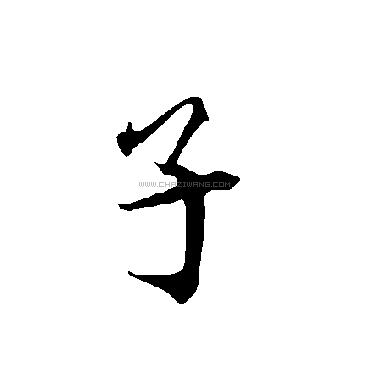 子
WWW.CHAZIWANG.COM